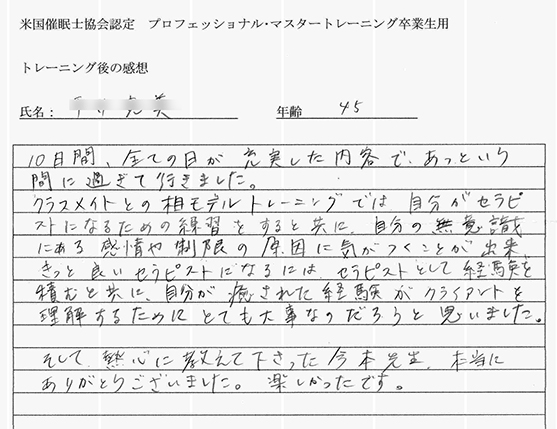 米国催眠士協会認定　プロフェッショナル・マスタートレーニング卒業生用
トレーニング後の感想
氏名： 美　年齢　45
10日間、全ての日が充実した内容で、あっという
間に過ぎて行きました。
クラスメイトとの相モデルトレーニングでは自分がセラピ
ストになるための練習をすると共に、自分の無意識
にある感情や制限の原因に気がつくことが出来
きっと良いセラピストになるには セラピストとして経験を
積むと共に、自分が癒された経験がクライアントを
理解するために とても大事なのだろうと思いました。
そして、熱心に教えて下さった今本先生、本当に
ありがとうございました。楽しかったです。